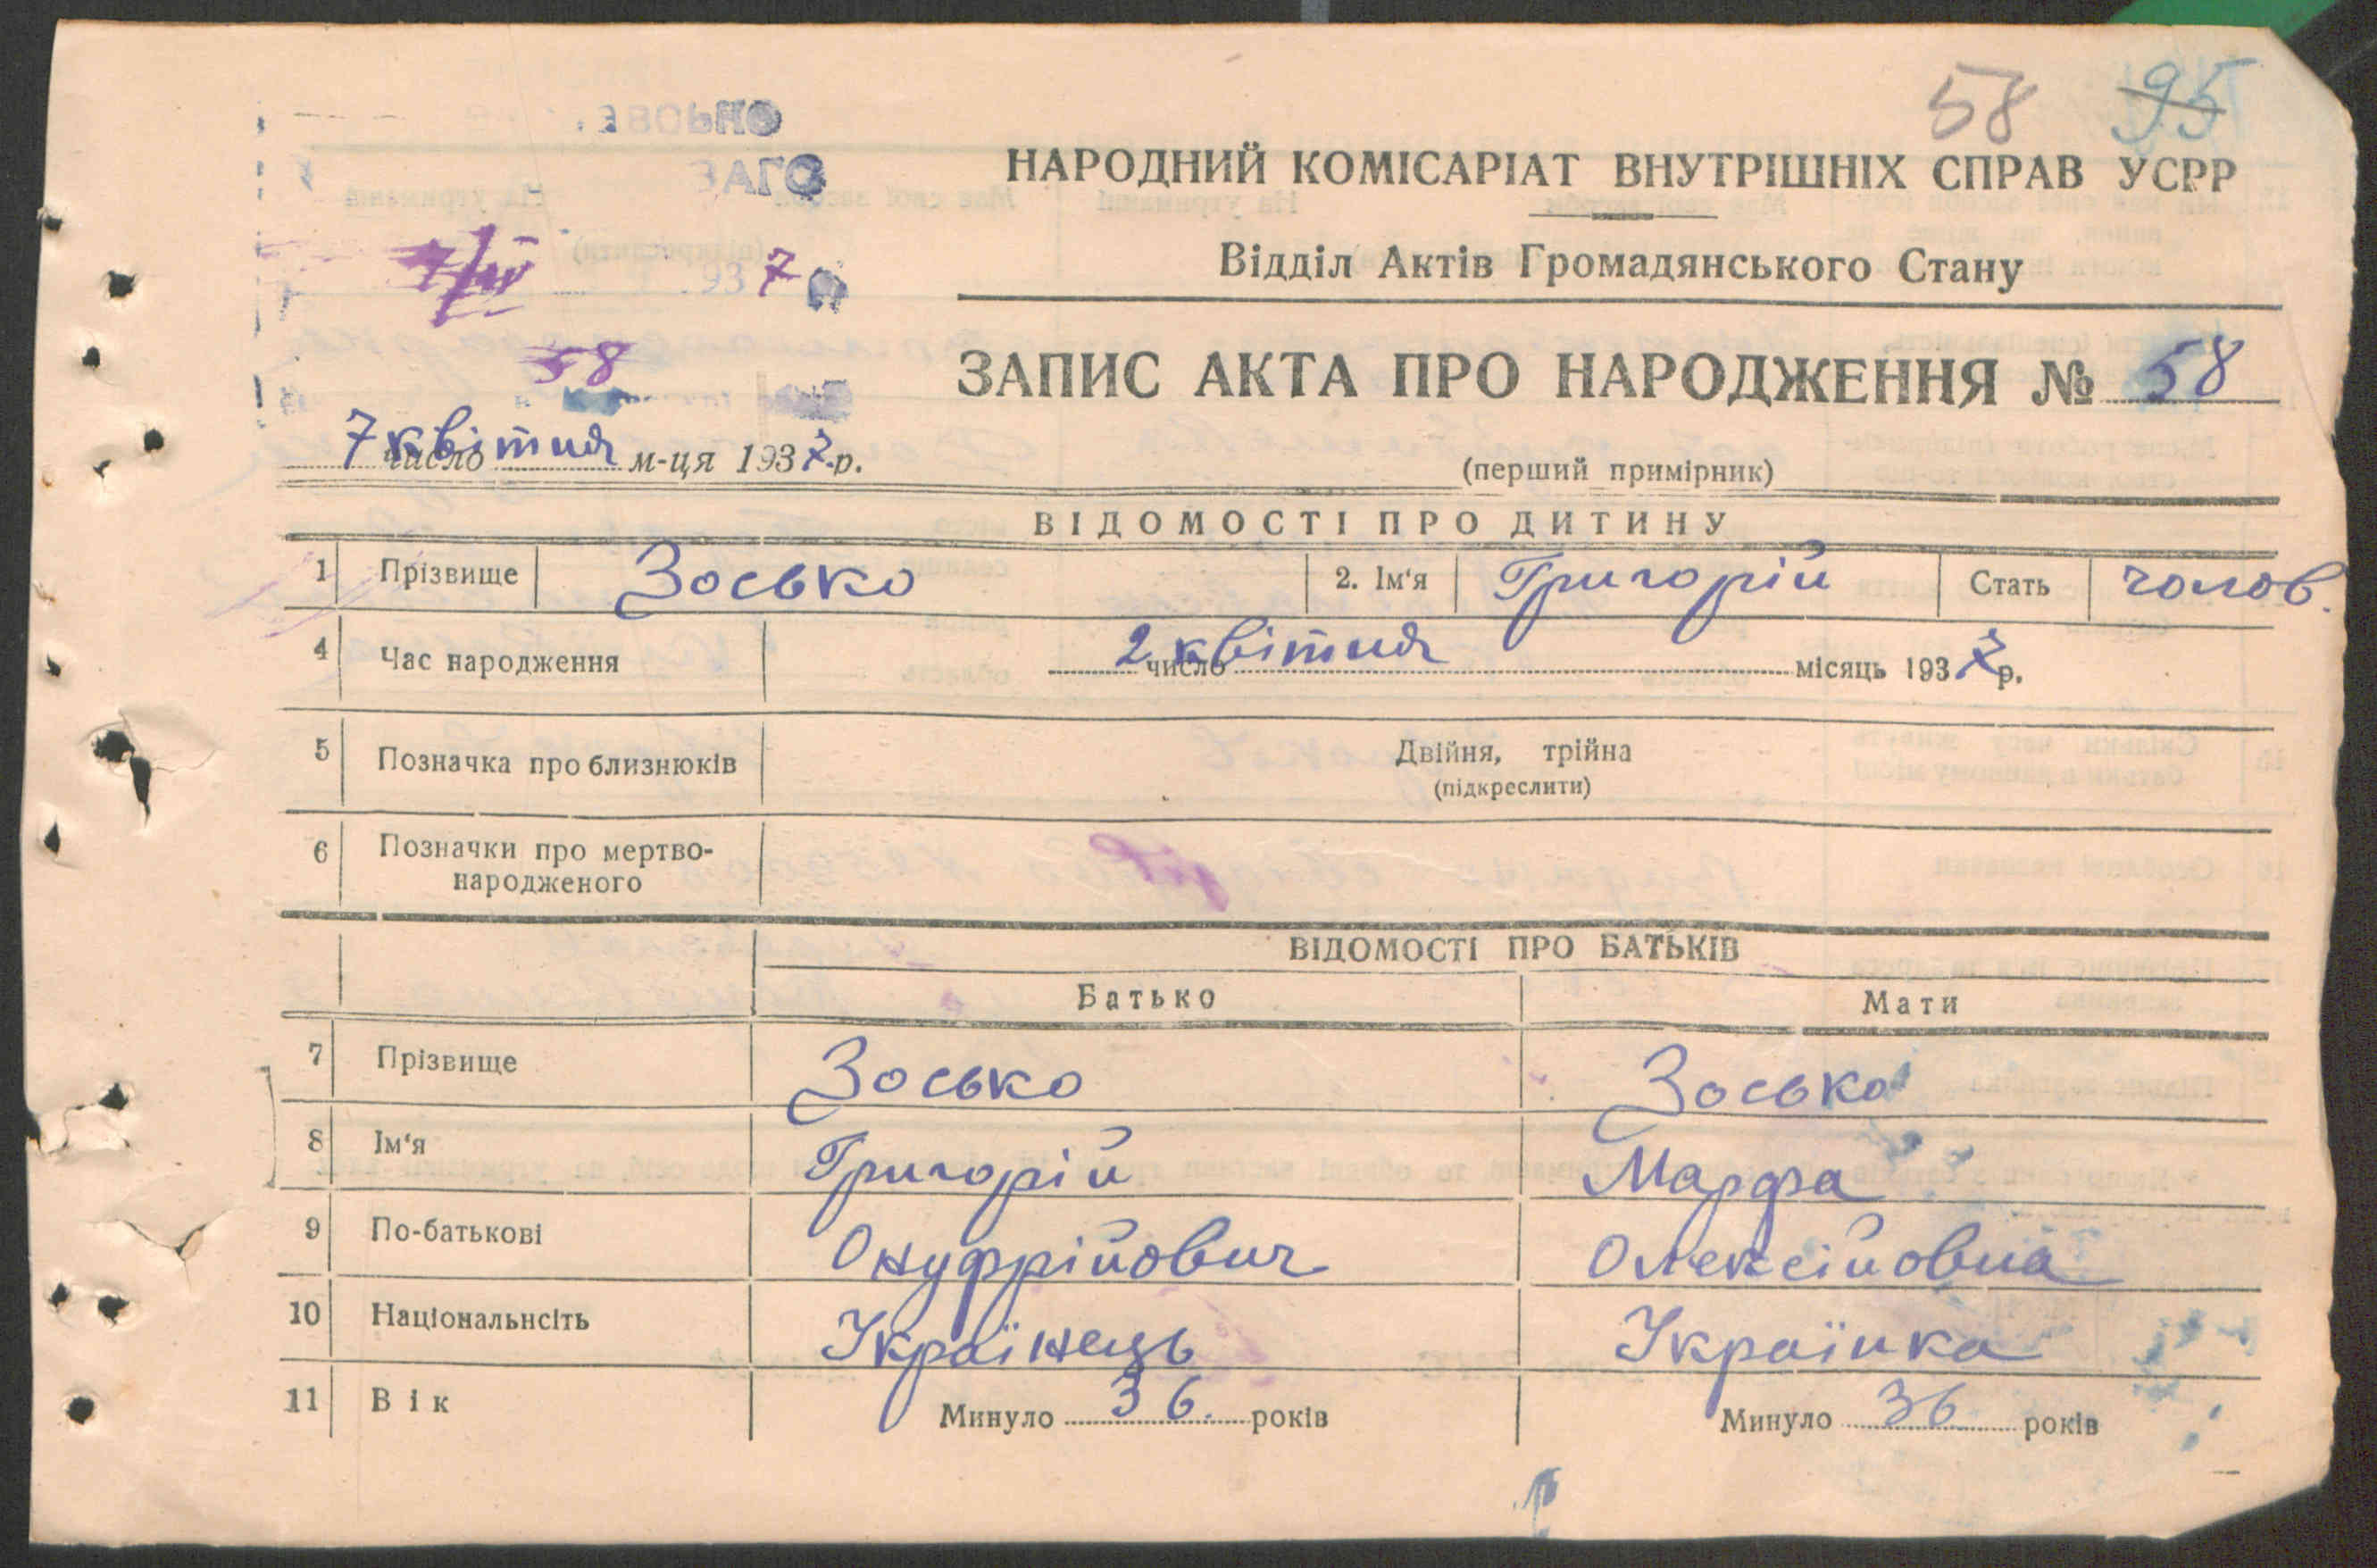 58 95
ЗАГС
НАРОДНИЙ КОМІСАРІАТ ВНУТРІШНІХ СПРАВ УСРР
Відділ Актів Громадянського Стану
7/IV 1937
58
ЗАПИС АКТА ПРО НАРОДЖЕННЯ № 58
7 число квітня м-ця 1937 р.
(перший примірник)
ВІДОМОСТІ ПРО ДИТИНУ
1 Прізвище Зосько 2. Ім'я Григорій Стать чолов.
4 Час народження 2 число квітня місяць 1937 р.
5 Позначка про близнюків Двійня, трійна
(підкреслити)
6 Позначки про мертво-
народженого
ВІДОМОСТІ ПРО БАТЬКІВ
Батько Мати
7 Прізвище Зосько Зосько
8 Ім'я Григорій Марфа
9 По-батькові Онуфрійович Олексійовна
10 Національнсіть Українець Українка
11 Вік Минуло 36. років Минуло 36 років